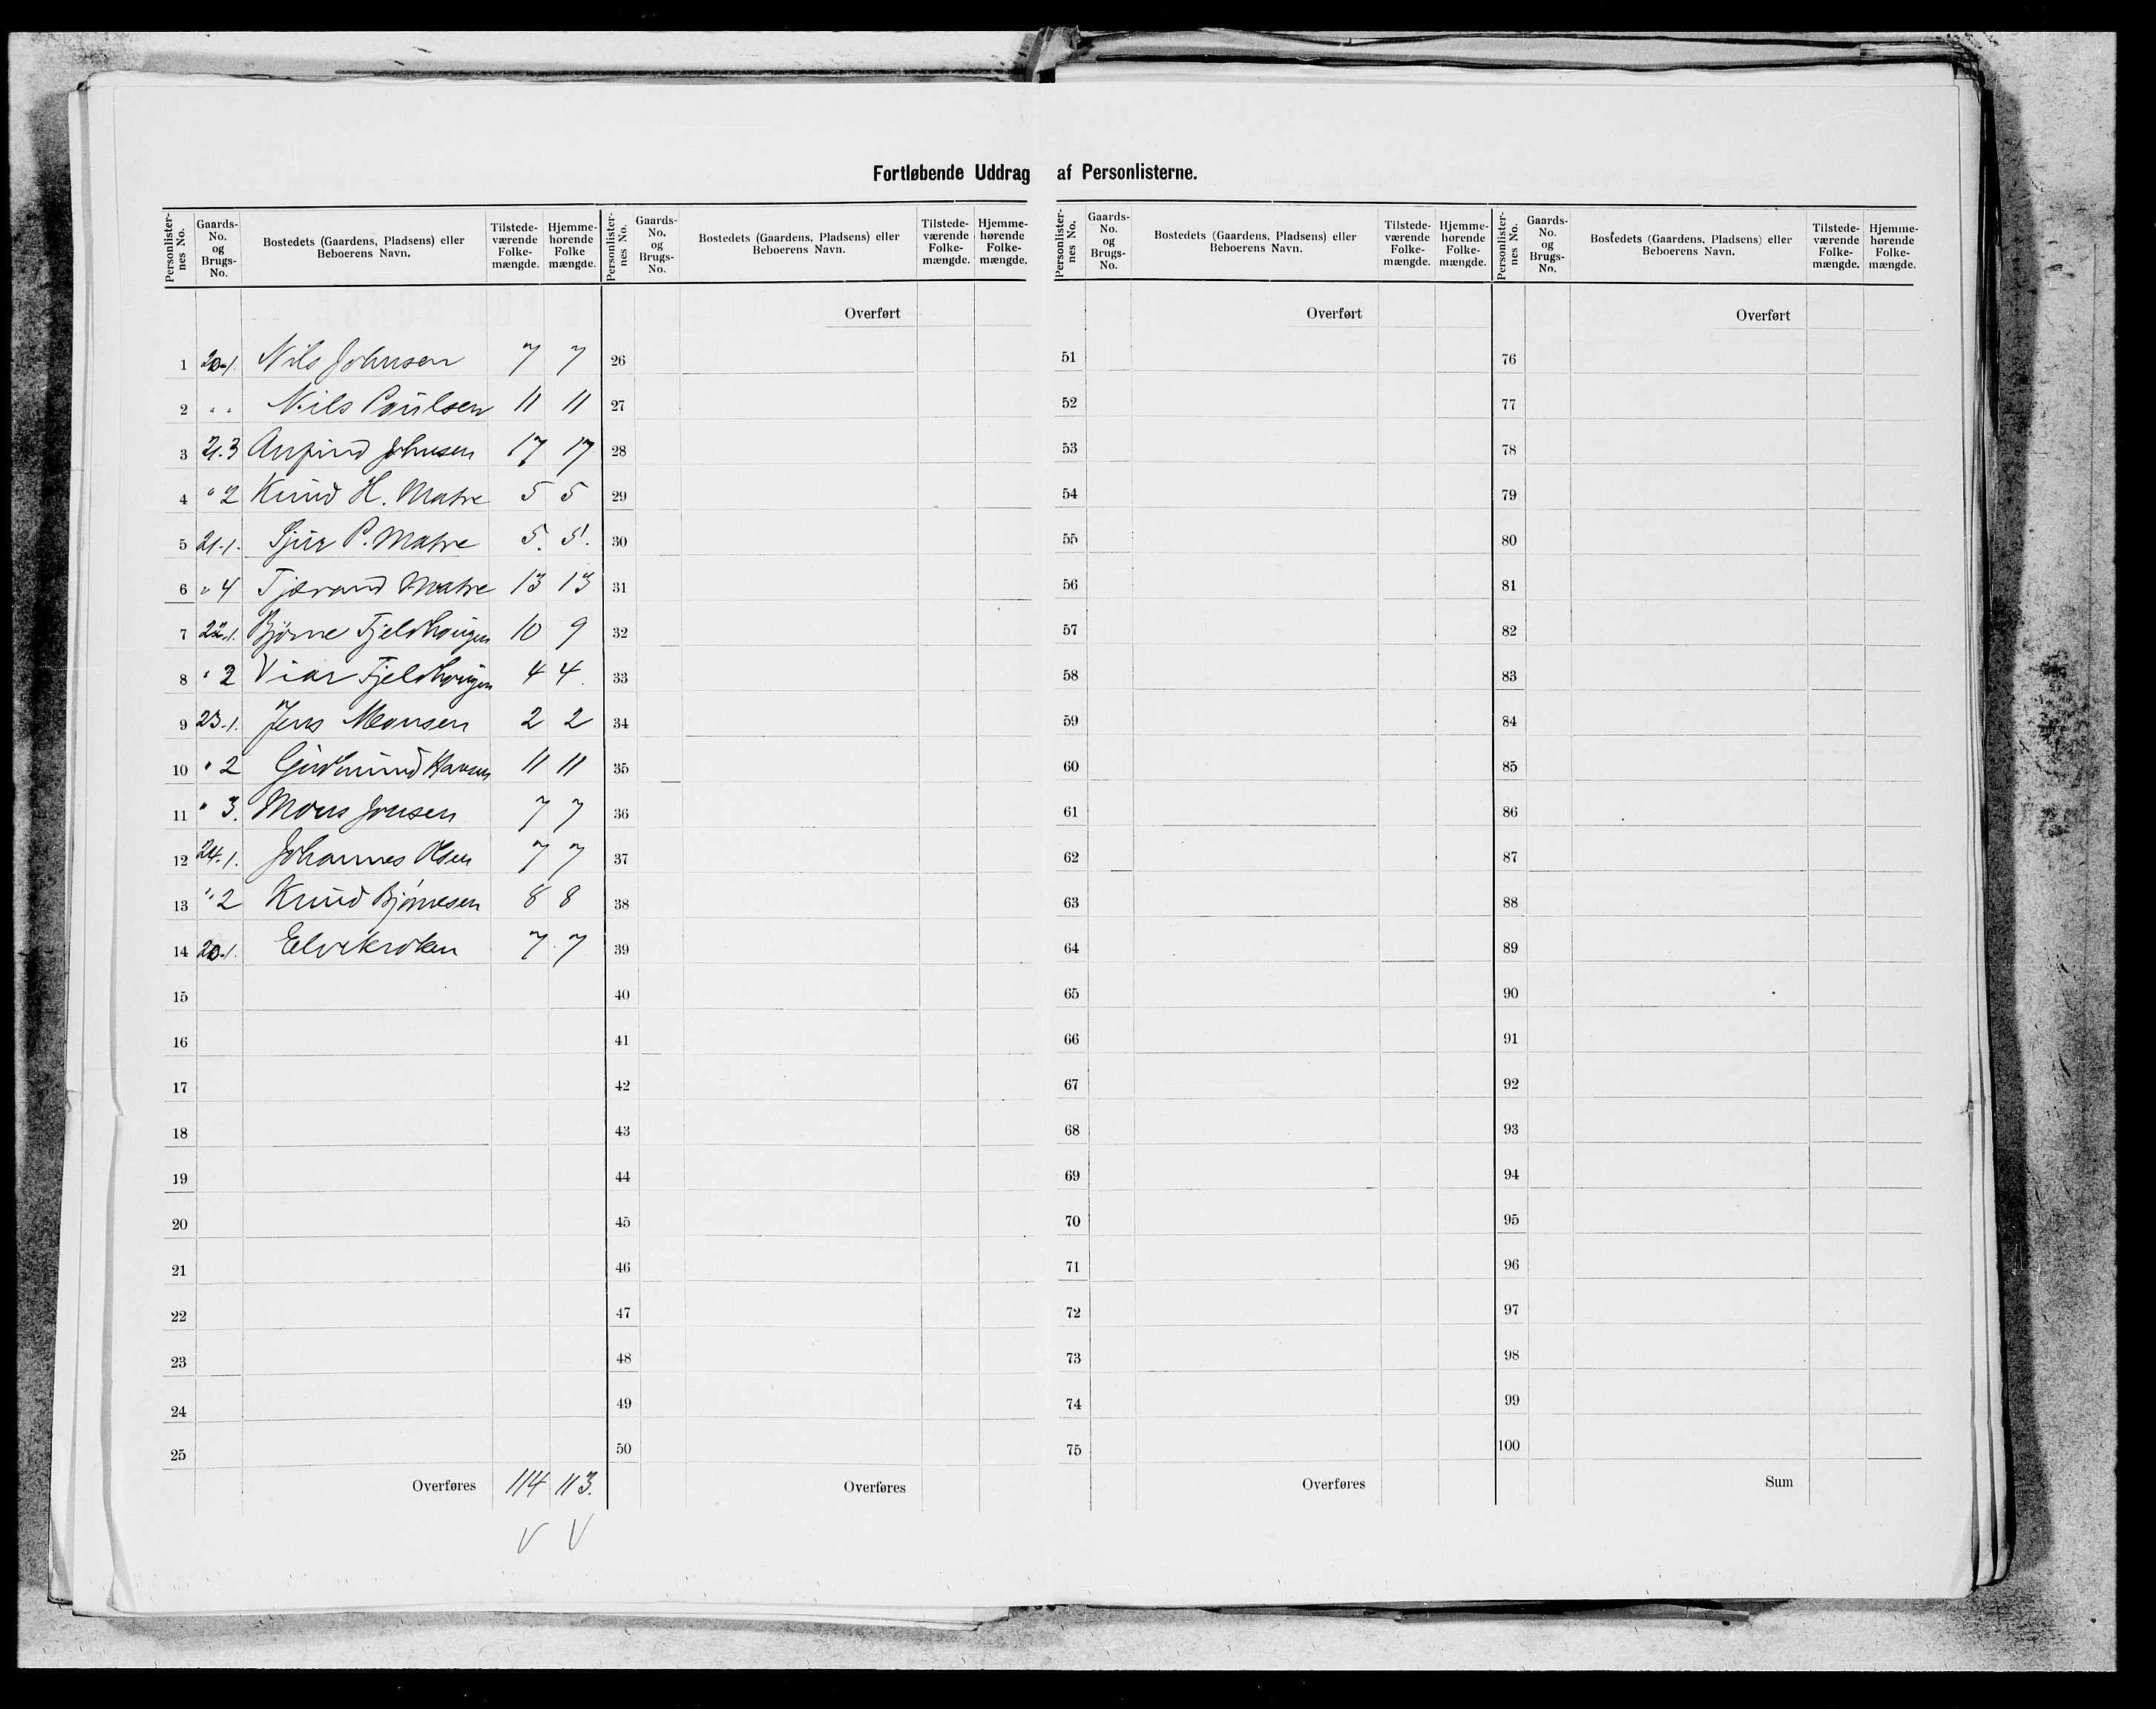 Fortløbende Uddrag af Personlisterne.
Personlister-nes No. Gaards-No. og Brugs-No. Bostedets (Gaardens, Pladsens) eller Beboerens Navn. Tilstede-værende Folke-mængde. Hjemme-hørende Folke mængde.
1 20.1. Nils Johnsen 7 7
2 " " Nils Poulsen 11 11
3 21.3 Anfind Johnsen 17 17
4 " 2 Knud H. Matre 5 5
5 21.1. Sjur P. Matre 5. 5.
6 " 4 Tjærand Matre 13 13
7 22.1. Bjørne Fjeldhaugen 10 9
8 " 2 Viar Fjeldhaugen 4 4.
9 23.1. Jens Monsen 2 2
10 " 2 Gudmund Hansen 11 11
11 " 3. Mons Jonsen 7 7
12 24.1. Johannes Olsen 7 7
13 " 2 Knud Bjørnesen 8 8
14 20.1. Elvekroken 7 7
15
16
17
18
19
20
21
22
23
24
25
Overføres 114 113.
V V
Personlister-nes No. Gaards-No. og Brugs-No. Bostedets (Gaardens, Pladsens) eller Beboerens Navn. Tilstede-værende Folke-mængde. Hjemme-hørende Folke-mængde.
Overført
26
27
28
29
30
31
32
33
34
35
36
37
38
39
40
41
42
43
44
45
46
47
48
49
50
Overføres
Personlister-nes No. Gaards-No. og Brugs-No. Bostedets (Gaardens, Pladsens) eller Beboerens Navn. Tilstede-værende Folke-mængde. Hjemme-hørende Folke-mængde.
Overført
51
52
53
54
55
56
57
58
59
60
61
62
63
64
65
66
67
68
69
70
71
72
73
74
75
Overføres
Personlister-nes No. Gaards-No. og Brugs-No. Bostedets (Gaardens, Pladsens) eller Beboerens Navn. Tilstede-værende Folke-mængde. Hjemme-hørende Folke-mængde.
Overført
76
77
78
79
80
81
82
83
84
85
86
87
88
89
90
91
92
93
94
95
96
97
98
99
100
Sum